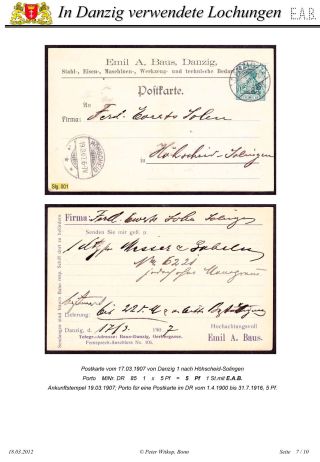 In Danzig verwendete Lochungen
E.A.B.
Emil A. Baus, Danzig,
Stahl-, Eisen-, Maschinen-, Werkzeug- und technische Bedar
Postkarte.
An
Firma: Ferd. Everts Sohn
Höhscheid-Solingen
Slg. 001
Firma: Ferd. Everts Sohn Solingen
Senden Sie mir gefl. p.
1 dtz Messer & Gabeln
No 6221
jedoch ohne Monogramm
Lieferung: bis 225
Danzig, d. 17/3. 1907
Hochachtungsvoll
Telegr.-Adresse: Baus-Danzig, Gerbergasse.
Fernsprech-Anschluss No.
Emil A. Baus.
Postkarte vom 17.03.1907 von Danzig 1 nach Höhscheid-Solingen
Porto MiNr. DR 85 1 x 5 Pf = 5 Pf 1 St mit E.A.B.
Ankunftstempel 19.03.1907; Porto für eine Postkarte im DR vom 1.4.1900 bis 31.7.1916, 5 Pf
18.03.2012
© Peter Witkop, Bonn
Seite 7 / 10